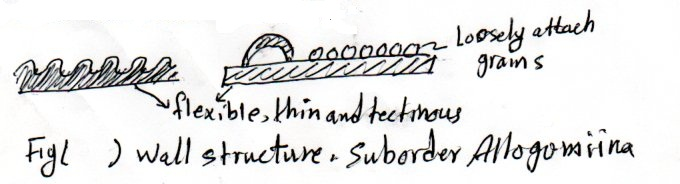 Loosely attach
grams
flexible, thin and tectinous
Fig( ) Wall structure. Suborder Allogomiina